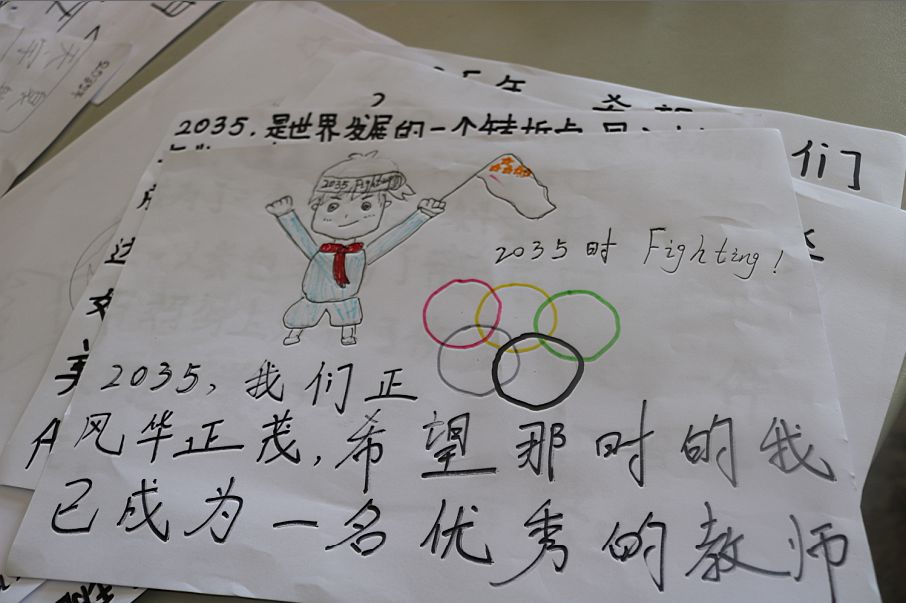 2035，是世界发展的一个转折点
们
2035，Fighting
2035时 Fighting！
2035，我们正
风华正茂，希望那时的我
已成为一名优秀的教师